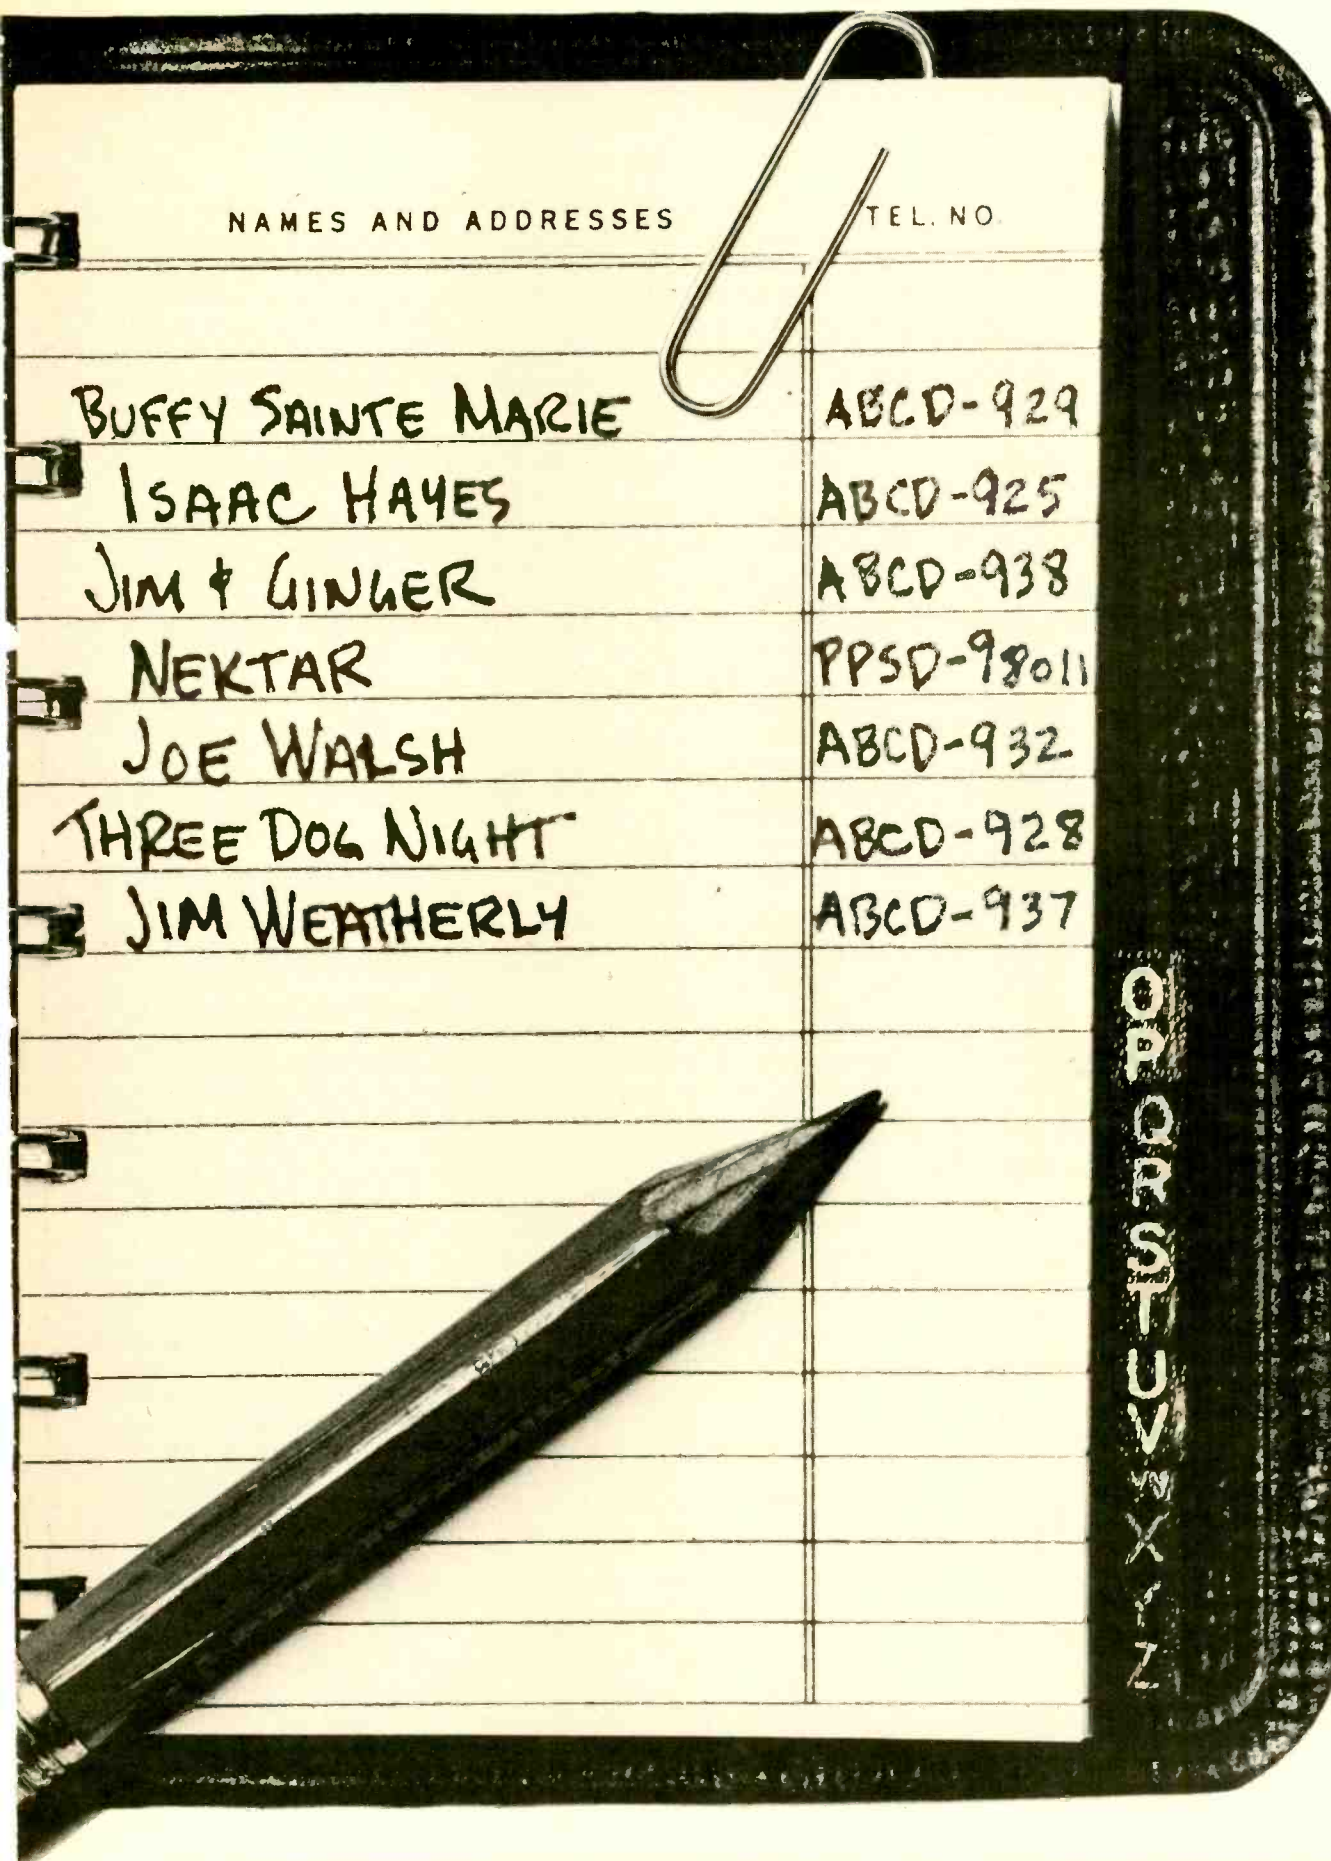 NAMES AND ADDRESSES TEL. NO.
BUFFY SAINTE MARIE ABCD-929
ISAAC HAYES ABCD-925
JIM & GINGER ABCD-938
NEKTAR PPSD-98011
JOE WALSH ABCD-932
THREE DOG NIGHT ABCD-928
JIM WEATHERLY ABCD-937
O
P
Q
R
S
T
U
V
W
X
Y
Z